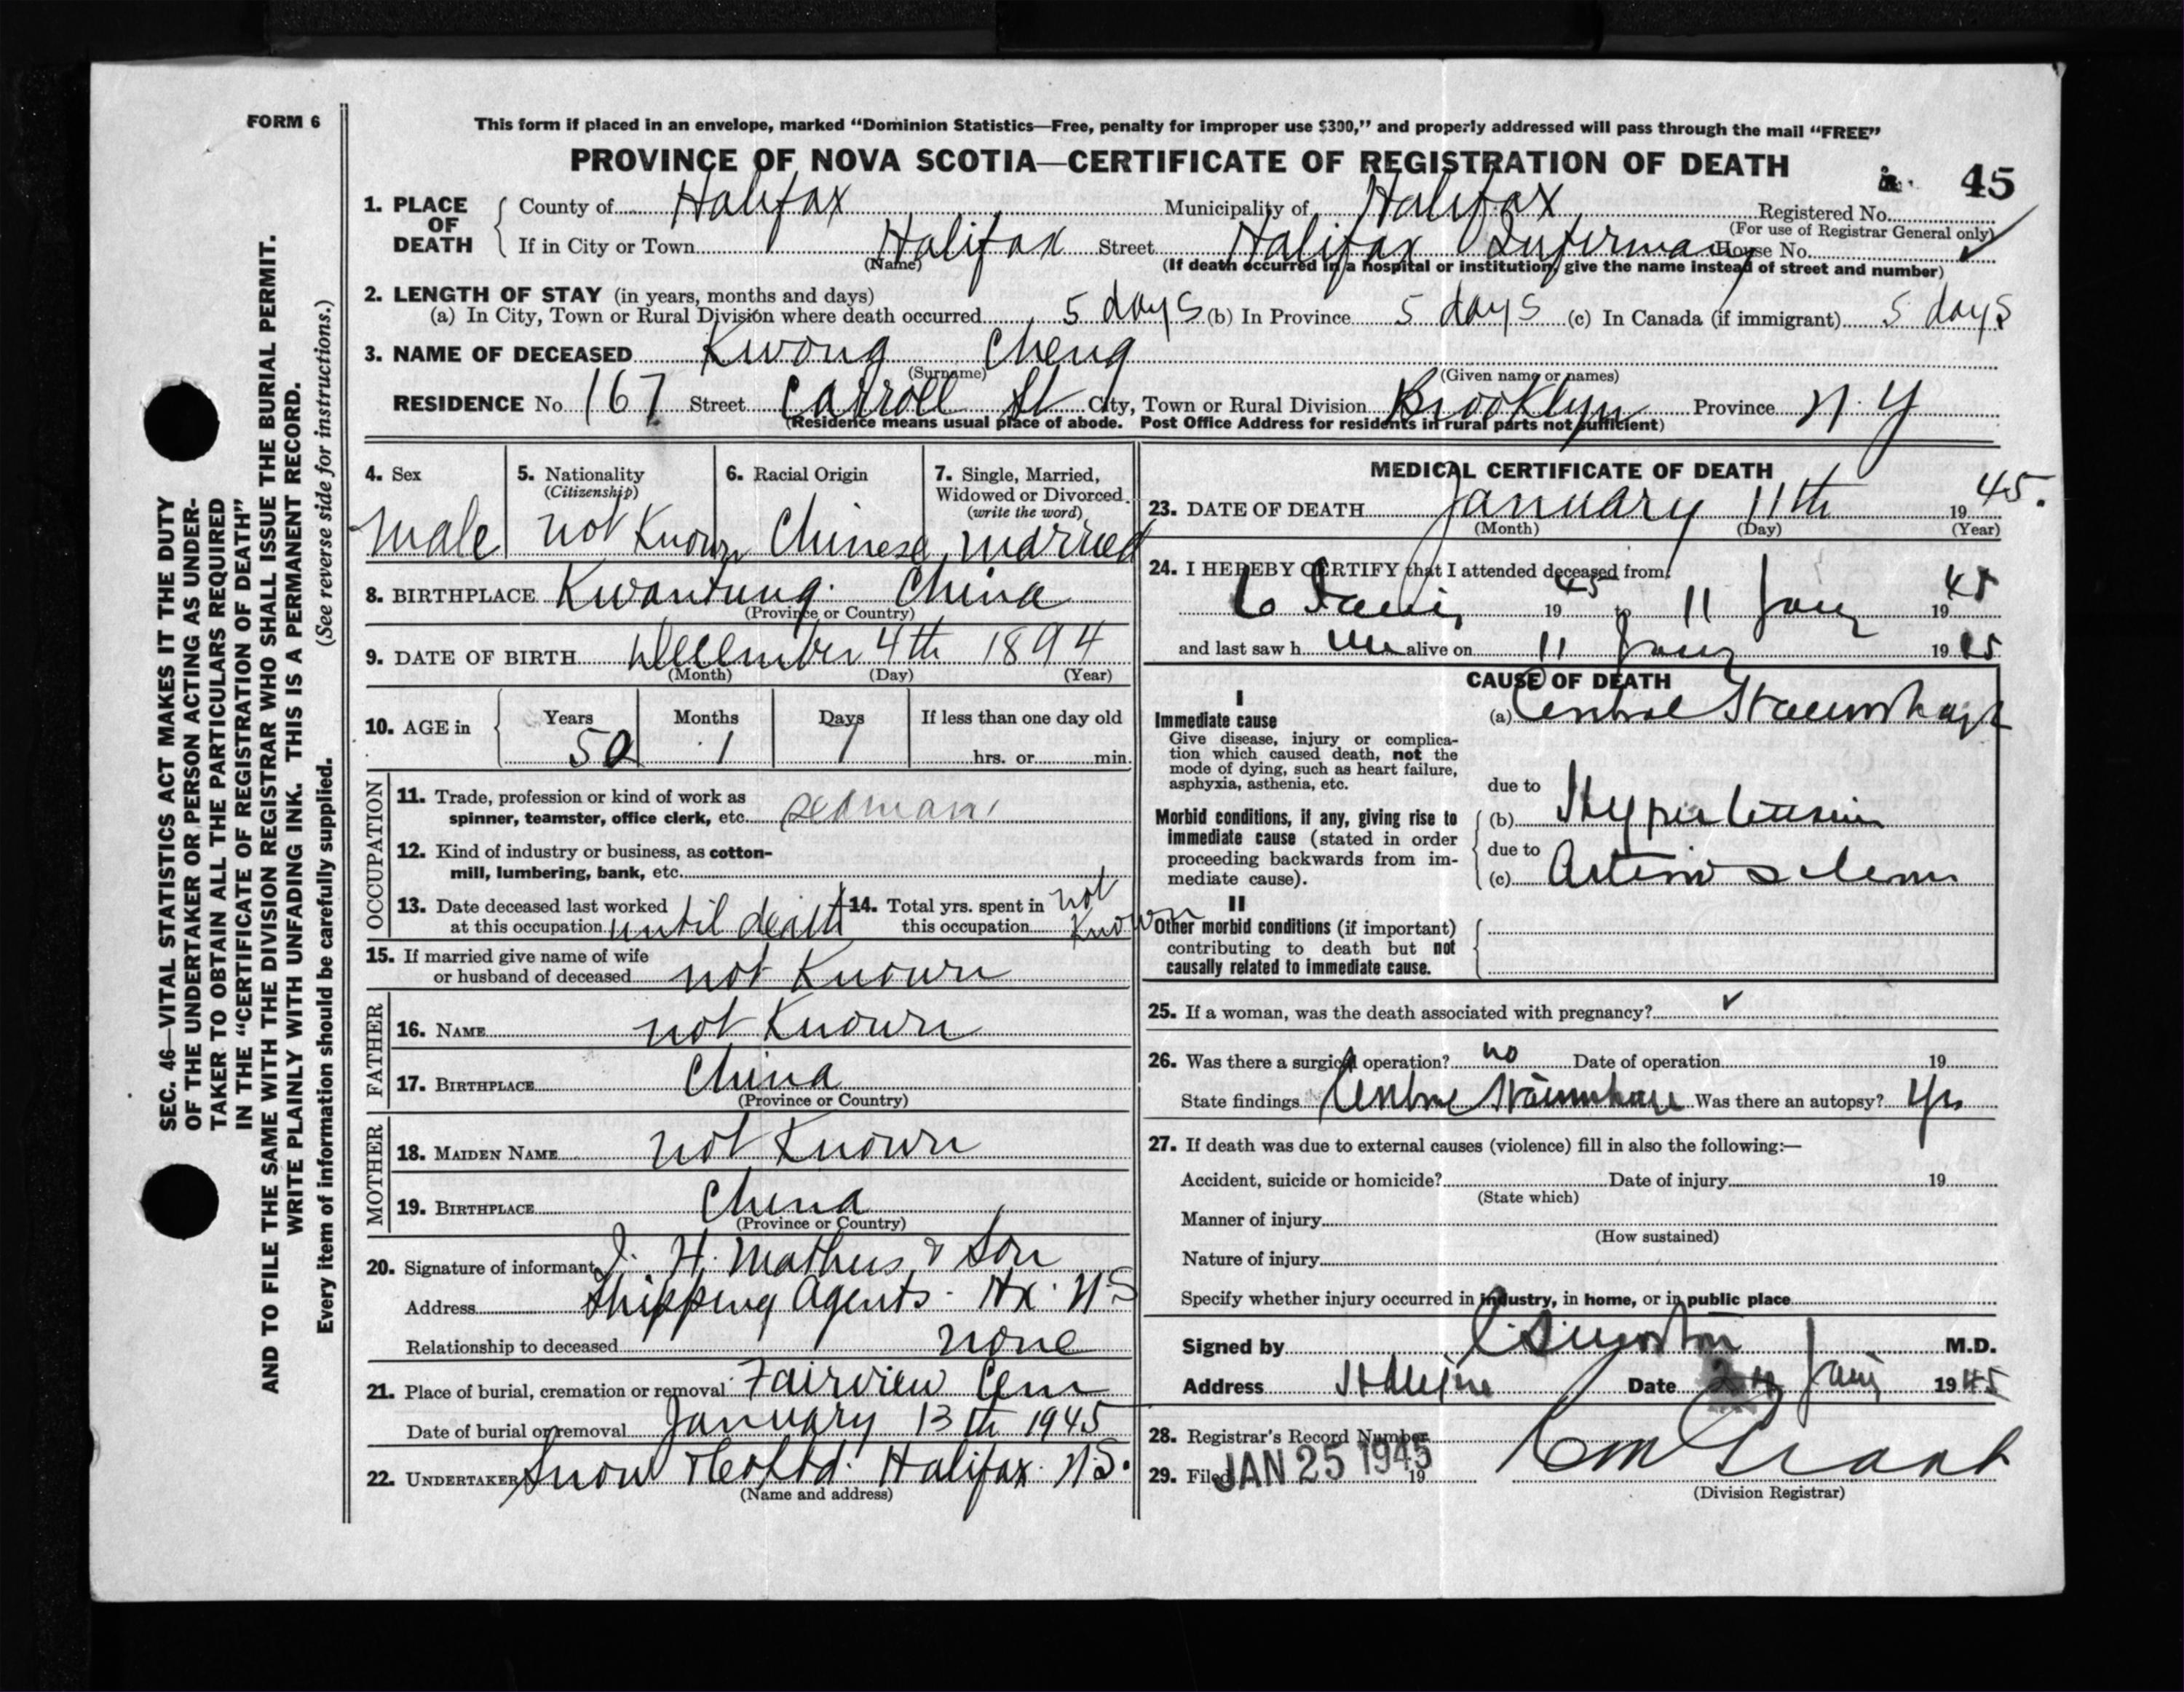 FORM 6
This form if placed in an envelope, marked “Dominion Statistics—Free, penalty for improper use $300,” and properly addressed will pass through the mail “FREE”
PROVINCE OF NOVA SCOTIA—CERTIFICATE OF REGISTRATION OF DEATH
45
1. PLACE OF DEATH
County of Halifax Municipality of Halifax Registered No.
(For use of Registrar General only)
If in City or Town Halifax Street Halifax Infirmary House No.
(Name) (If death occurred in a hospital or institution, give the name instead of street and number)
2. LENGTH OF STAY (in years, months and days)
(a) In City, Town or Rural Division where death occurred 5 days (b) In Province 5 days (c) In Canada (if immigrant) 5 days
3. NAME OF DECEASED Kwong Cheng
(Surname) (Given name or names)
RESIDENCE No. 167 Street Carroll St City, Town or Rural Division Brooklyn Province N.Y
(Residence means usual place of abode. Post Office Address for residents in rural parts not sufficient)
4. Sex
male
5. Nationality
(Citizenship)
not Known
6. Racial Origin
Chinese
7. Single, Married,
Widowed or Divorced.
(write the word)
married
8. BIRTHPLACE Kwantung. China
(Province or Country)
9. DATE OF BIRTH December 4th 1894
(Month) (Day) (Year)
10. AGE in
Years Months Days If less than one day old
50 1 7 hrs. or min.
OCCUPATION
11. Trade, profession or kind of work as
spinner, teamster, office clerk, etc. seaman
12. Kind of industry or business, as cotton-
mill, lumbering, bank, etc.
13. Date deceased last worked
at this occupation until death
14. Total yrs. spent in
this occupation not Known
15. If married give name of wife
or husband of deceased not Known
FATHER
16. NAME not Known
17. BIRTHPLACE China
(Province or Country)
MOTHER
18. MAIDEN NAME not Known
19. BIRTHPLACE China
(Province or Country)
20. Signature of informant I. H. Mathers & Son
Address Shipping Agents - Hx. N.S
Relationship to deceased none
21. Place of burial, cremation or removal Fairview Cem
Date of burial or removal January 13th 1945
22. UNDERTAKER Snow & Co Ltd. Halifax. N.S.
(Name and address)
MEDICAL CERTIFICATE OF DEATH
23. DATE OF DEATH January 11th 1945.
(Month) (Day) (Year)
24. I HEREBY CERTIFY that I attended deceased from
6 1945 to 11 Jany 1945
and last saw him alive on 11 Jany 1945
CAUSE OF DEATH
I
Immediate cause
Give disease, injury or complica-
tion which caused death, not the
mode of dying, such as heart failure,
asphyxia, asthenia, etc.
(a) Cerebral Haemorrhage
due to
Morbid conditions, if any, giving rise to
immediate cause (stated in order
proceeding backwards from im-
mediate cause).
(b) Hypertension
due to
(c) Arterio sclerosis
II
Other morbid conditions (if important)
contributing to death but not
causally related to immediate cause.
25. If a woman, was the death associated with pregnancy?
26. Was there a surgical operation? no Date of operation 19
State findings Cerebral Haemorrhage Was there an autopsy? Yes
27. If death was due to external causes (violence) fill in also the following:—
Accident, suicide or homicide? Date of injury 19
(State which)
Manner of injury
(How sustained)
Nature of injury
Specify whether injury occurred in industry, in home, or in public place
Signed by M.D.
Address Halifax Date Jany 1945
28. Registrar's Record Number
29. Filed JAN 25 1945 19
(Division Registrar)
SEC. 46—VITAL STATISTICS ACT MAKES IT THE DUTY
OF THE UNDERTAKER OR PERSON ACTING AS UNDER-
TAKER TO OBTAIN ALL THE PARTICULARS REQUIRED
IN THE “CERTIFICATE OF REGISTRATION OF DEATH”
AND TO FILE THE SAME WITH THE DIVISION REGISTRAR WHO SHALL ISSUE THE BURIAL PERMIT.
WRITE PLAINLY WITH UNFADING INK. THIS IS A PERMANENT RECORD.
Every item of information should be carefully supplied. (See reverse side for instructions.)